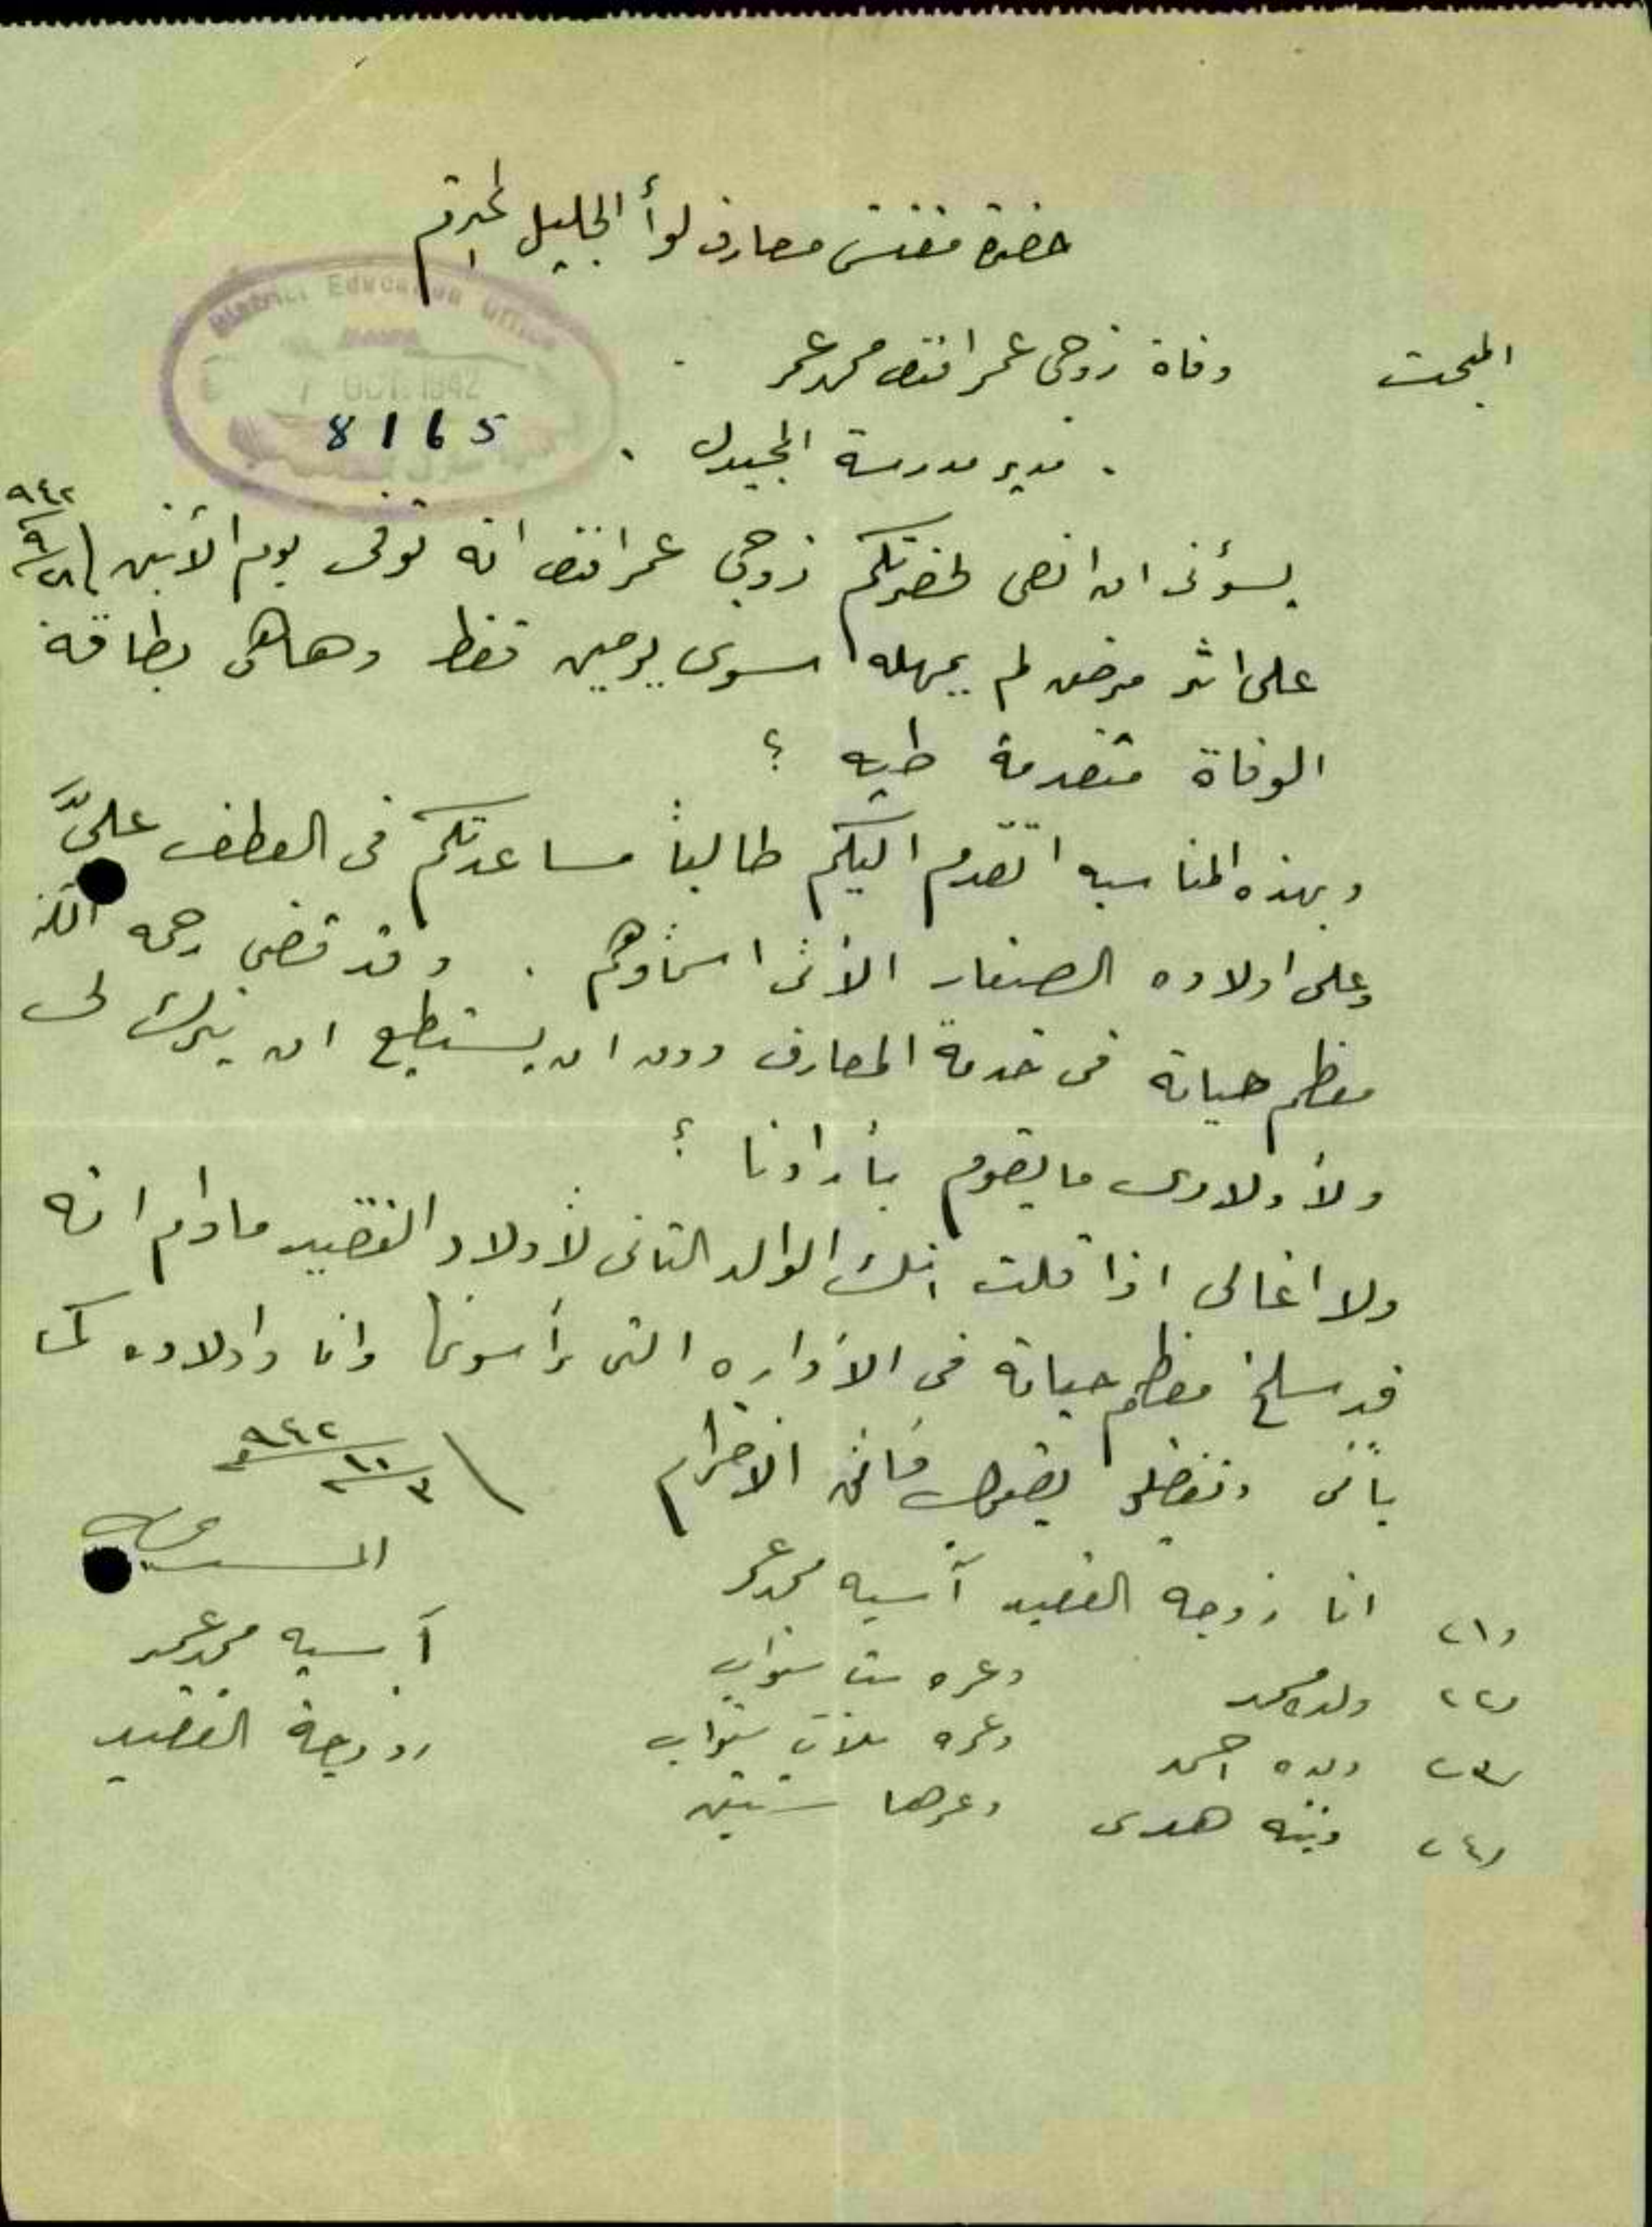 حضرة مفتش معارف لوأ الجليل المحترم
District Education Office
7 OCT. 1942
8165
المبحث وفاة زوجي عمر افندي محمد عمر
مدير مدرسة المجيدل
يسؤني ان انعى لحضرتكم زوجي عمر افندي انه توفى يوم الأثنين ٢٨/٩/٩٤٢
على اثر مرض لم يمهله سوى يومين فقط وهاهى بطاقة
الوفاة متقدمة طيه ؟
وبهذه المناسبه اتقدم اليكم طالبأ مساعدتكم فى العطف علىَّ
وعلى اولاده الصغار الأتى اسماؤهم . وقد قضى رحمه الله
معظم حياته فى خدمة المعارف دون ان يستطيع ان يترك لى
ولأولادى ما يقوم بأودنا ؟
ولا اغالى اذا قلت انك الوالد الثانى لأولاد الفقيد مادام انه
قد سلخ معظم حياته فى الأداره التى ترأسونها وانا واولاده كما
يأتى وتفضلو بقبول فائق الاحترام ٣/١٠/٩٤٢
(١) انا زوجه الفقيد آسيه محمد عمر
(٢) ولده محمد وعمره ست سنوات
(٣) ولده احمد وعمره ثلاث سنوات
(٤) وبنته هدى وعمرها سنتين
آسيه محمد عمر
زوجة الفقيد